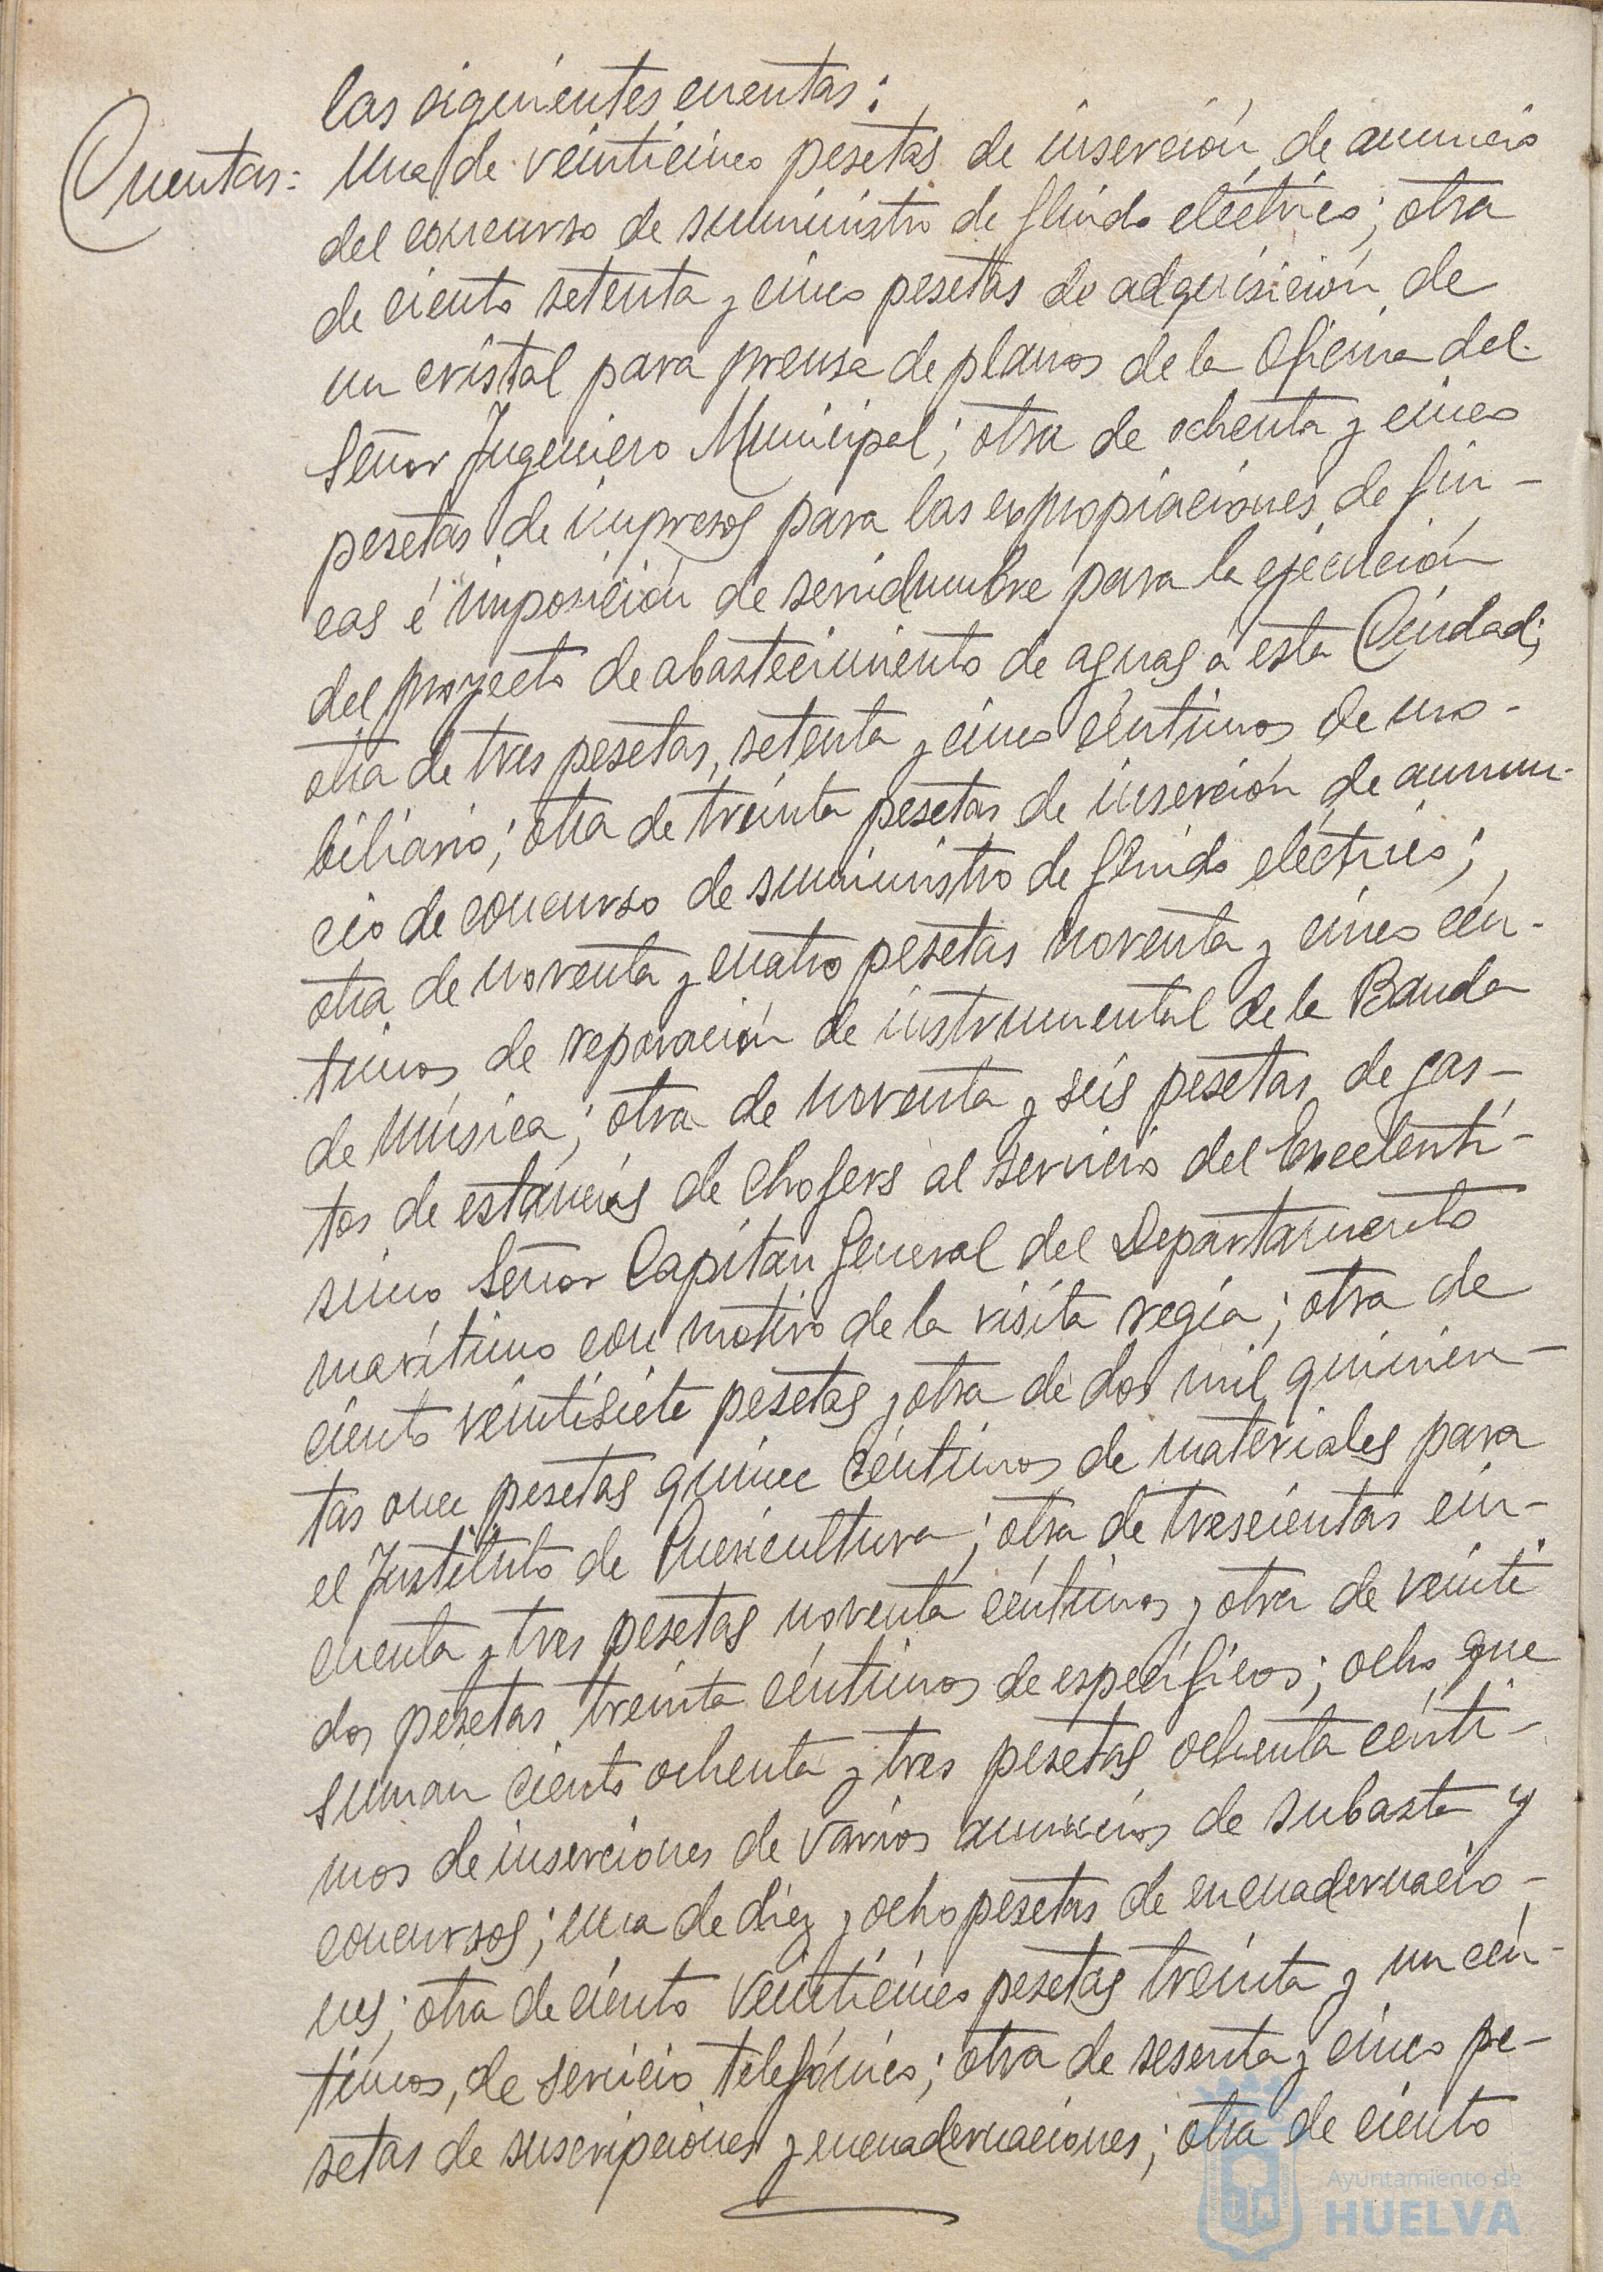 las siguientes cuentas:
Cuentas: Una de veinticinco pesetas de inserción de anuncio
del concurso de suministro de flúido eléctrico; otra
de ciento setenta y cinco pesetas de adquisición de
un cristal para prensa de planos de la Oficina del
Señor Ingeniero Municipal; otra de ochenta y cinco
pesetas de impresos para las expropiaciones de fin-
cas é imposición de servidumbre para la ejecución
del proyecto de abastecimiento de aguas á esta Ciudad;
otra de tres pesetas, setenta y cinco céntimos de mo-
biliario; otra de treinta pesetas de inserción de anun-
cio de concurso de suministro de flúido eléctrico;
otra de noventa y cuatro pesetas noventa y cinco cén-
timos de reparación de instrumental de la Banda
de música; otra de noventa y seis pesetas de gas-
tos de estancias de chofers al servicio del Excelentí-
simo Señor Capitán General del Departamento
marítimo con motivo de la visita regia; otra de
ciento veintisiete pesetas y otra de dos mil quinien-
tas once pesetas quince céntimos de materiales para
el Instituto de Puericultura; otra de trescientas cin-
cuenta y tres pesetas noventa céntimos y otra de veinti
dos pesetas treinta céntimos de específicos; ocho que
suman ciento ochenta y tres pesetas ochenta cénti-
mos de inserciones de varios anuncios de subasta y
concursos; una de diez y ocho pesetas de encuadernacio-
nes; otra de ciento veinticinco pesetas treinta y un cén-
timos, de servicio telefónico; otra de sesenta y cinco pe-
setas de suscripciones y encuadernaciones; otra de ciento
Ayuntamiento de
HUELVA